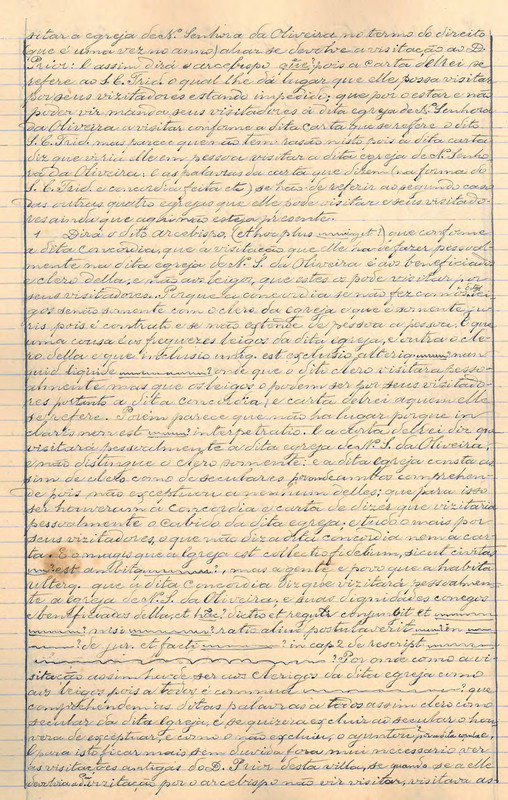 sitar a egreja de N.ª Senhora da Oliveira no termo do direito
que é uma vez no anno) aliar se devolve a visitação ao D.
Prior: E assim dirá o arcebispo que pois a carta delrei se
refere ao S. C. Trid. o qual lhe dá lugar que elle possa visitar
por seus vizitadores estando impedido; que por o estar e não
poder vir manda seus visitadores á dita egreja de N.ª Senhora
da Oliveira a visitar conforme a dita carta que se refere o dito
S. C. Trid. mas parece que não têm rasão nisto pois a dita carta
diz que virá elle em pessoa visitar a dita egreja de N.ª Senho
ra da Oliveira. E as palavras da carta que dizem (na forma do
S. C. Trid. e concordia feita etc) se hão de referir ao segundo caso
das outras quatro egrejas que elle pode visitar e seus visitado-
res ainda que aqui não esteja presente.
Dirá o dito arcebispo, (et hoc plus) que conforme
a dita concordia, que a visitação que elle ha de fazer pessoal-
mente na dita egreja de N.ª S. da Oliveira é aos beneficiados
e clero della, e não aos leigos, que estes os pode visitar por
seus visitadores. Porque a concordia se não fez com os lei-
gos senão somente com o clero da egreja e que é somente ju-
ris pois é contrato e se não estende de pessoa a pessoa. E que
uma cousa é os freguezes leigos da dita egreja, e outra o cle-
ro della e que inclusio unius est exclusio alterius
quid liquide onde que o dito clero visitará pesso-
almente mas que os leigos o podem ser por seus visitado-
res portanto a dita concordia, e carta delrei a quem elle
se refere. Porém parece que não ha lugar porque in
claris non est interpretatio. E a carta delrei diz que
visitará pessoalmente a dita egreja de N.ª S. da Oliveira,
e não distingue o clero somente: e a dita egreja consta as-
sim de clero como de seculares ambos comprehen-
de pois não exceptuou a nenhum delles; que para isso
ser houveram a concordia e carta de dizer que vizitaria
pessoalmente o cabido da dita egreja, e tudo o mais por
seus vizitadores, o que não diz a dita concordia nem a car-
ta. Eo magis que a egreja est collectio fidelium, sicut civitas
est, mas a gente e povo que a habita
que a dita concordia diz que vizitará pessoalmen-
te a egreja de N.ª S. da Oliveira, e suas dignidades conegos
e beneficiados della, et
nisi ratio aliud postulaverit
de jur. et facti in cap 2 de rescript
Por onde como a vi-
sitação assim ha de ser aos clerigos da dita egreja como
aos leigos pois a todos é commum que
comprehendem as ditas palavras a todos assim clero como
secular da dita egreja, e se quizera excluir ao secular o hou
vera de exceptuar, e como o não excluiu, o ajuntou
E para isto ficar mais sem duvida fora mui necessario ver
as visitações antigas do D. Prior desta villa, se quando se a elle
devolvia a vizitação por o arcebispo não vir visitar, visitava as-